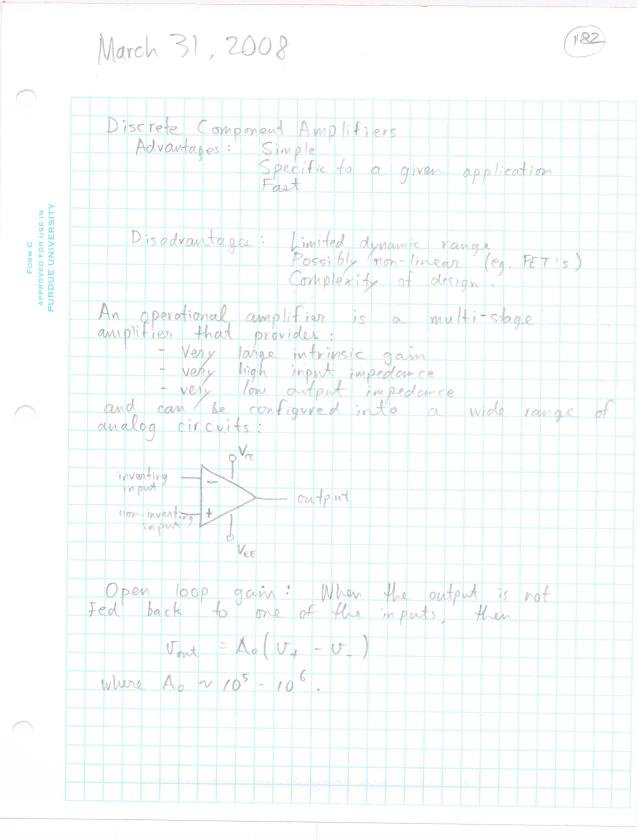 March 31, 2008
182
FORM C
APPROVED FOR USE IN
PURDUE UNIVERSITY
Discrete Component Amplifiers
Advantages: Simple
Specific to a given application
Fast
Disadvantages: Limited dynamic range
Possibly non-linear (eg. FET's)
Complexity of design.
An operational amplifier is a multi-stage
amplifier that provides:
- Very large intrinsic gain
- very high input impedance
- very low output impedance
and can be configured into a wide range of
analog circuits:
Vcc
inverting
input
-
output
non-inverting
input
+
VEE
Open loop gain: When the output is not
fed back to one of the inputs, then
vout = A₀(v₊ - v₋)
where A₀ ~ 10⁵ - 10⁶.